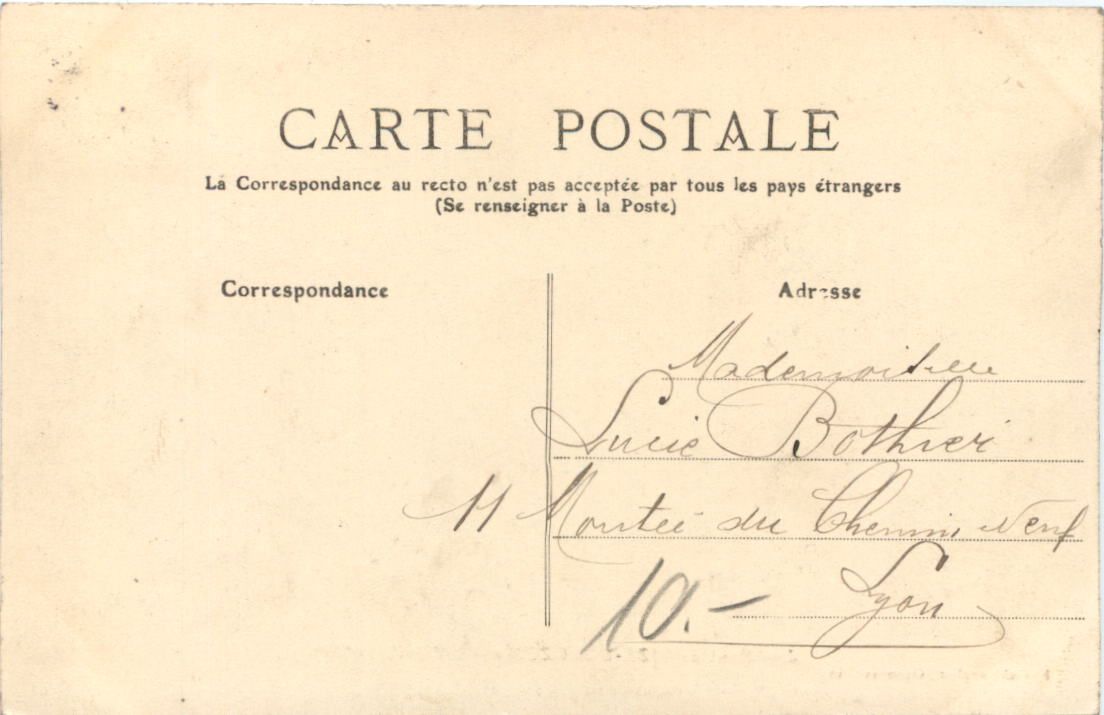 CARTE POSTALE
La Correspondance au recto n'est pas acceptée par tous les pays étrangers
(Se renseigner à la Poste)
Correspondance
Adresse
Mademoiselle
Lucie Bothier
11 Montée du Chemin Neuf
Lyon
10.-